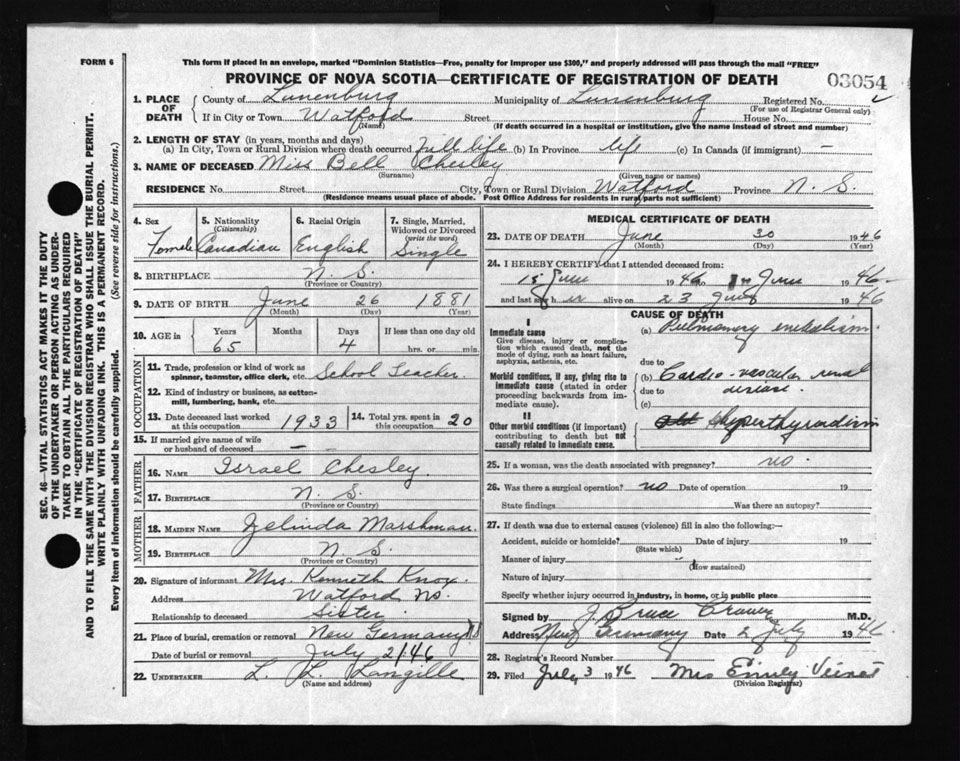 FORM 6
This form if placed in an envelope, marked "Dominion Statistics—Free, penalty for improper use $300," and properly addressed will pass through the mail "FREE"
PROVINCE OF NOVA SCOTIA—CERTIFICATE OF REGISTRATION OF DEATH
03054
SEC. 46—VITAL STATISTICS ACT MAKES IT THE DUTY
OF THE UNDERTAKER OR PERSON ACTING AS UNDER-
TAKER TO OBTAIN ALL THE PARTICULARS REQUIRED
IN THE "CERTIFICATE OF REGISTRATION OF DEATH"
AND TO FILE THE SAME WITH THE DIVISION REGISTRAR WHO SHALL ISSUE THE BURIAL PERMIT.
WRITE PLAINLY WITH UNFADING INK. THIS IS A PERMANENT RECORD.
Every item of information should be carefully supplied. (See reverse side for instructions.)
1. PLACE OF DEATH
County of Lunenburg Municipality of Lunenburg Registered No.
(For use of Registrar General only)
If in City or Town Watford Street House No.
(Name) (If death occurred in a hospital or institution, give the name instead of street and number)
2. LENGTH OF STAY (in years, months and days)
(a) In City, Town or Rural Division where death occurred full life (b) In Province life (c) In Canada (if immigrant) —
3. NAME OF DECEASED Miss Bell Chesley
(Surname) (Given name or names)
RESIDENCE No. Street City, Town or Rural Division Watford Province N. S.
(Residence means usual place of abode. Post Office Address for residents in rural parts not sufficient)
4. Sex Female
5. Nationality (Citizenship) Canadian
6. Racial Origin English
7. Single, Married, Widowed or Divorced (write the word) Single
8. BIRTHPLACE N. S.
(Province or Country)
9. DATE OF BIRTH June 26 1881
(Month) (Day) (Year)
10. AGE in Years Months Days If less than one day old
65 4 hrs. or min.
OCCUPATION
11. Trade, profession or kind of work as
spinner, teamster, office clerk, etc. School Teacher
12. Kind of industry or business, as cotten-
mill, lumbering, bank, etc.
13. Date deceased last worked
at this occupation 1933
14. Total yrs. spent in
this occupation 20
15. If married give name of wife
or husband of deceased —
FATHER
16. NAME Israel Chesley.
17. BIRTHPLACE N. S.
(Province or Country)
MOTHER
18. MAIDEN NAME Zelinda Marshman.
19. BIRTHPLACE N. S.
(Province or Country)
20. Signature of informant Mrs. Kenneth Knox.
Address Watford NS.
Relationship to deceased Sister
21. Place of burial, cremation or removal New Germany N S
Date of burial or removal July 2/46
22. UNDERTAKER L. L. Langille
(Name and address)
MEDICAL CERTIFICATE OF DEATH
23. DATE OF DEATH June 30 1946
(Month) (Day) (Year)
24. I HEREBY CERTIFY that I attended deceased from:
18 June 1946 to June 1946
and last saw her alive on 23 June 1946
CAUSE OF DEATH
I
Immediate cause
Give disease, injury or complica-
tion which caused death, not the
mode of dying, such as heart failure,
asphyxia, asthenia, etc.
(a) Pulmonary embolism.
due to
Morbid conditions, if any, giving rise to
immediate cause (stated in order
proceeding backwards from im-
mediate cause).
(b) Cardio-vascular renal
due to disease.
(c)
II
Other morbid conditions (if important)
contributing to death but not
causally related to immediate cause.
hyperthyroidism
25. If a woman, was the death associated with pregnancy? no.
26. Was there a surgical operation? no Date of operation 19
State findings Was there an autopsy?
27. If death was due to external causes (violence) fill in also the following:—
Accident, suicide or homicide? Date of injury 19
(State which)
Manner of injury
(How sustained)
Nature of injury
Specify whether injury occurred in industry, in home, or in public place
Signed by J. Bruce M.D.
Address New Germany Date 2 July 1946.
28. Registrar's Record Number
29. Filed July 3 1946 Mrs Emily Veinot
(Division Registrar)